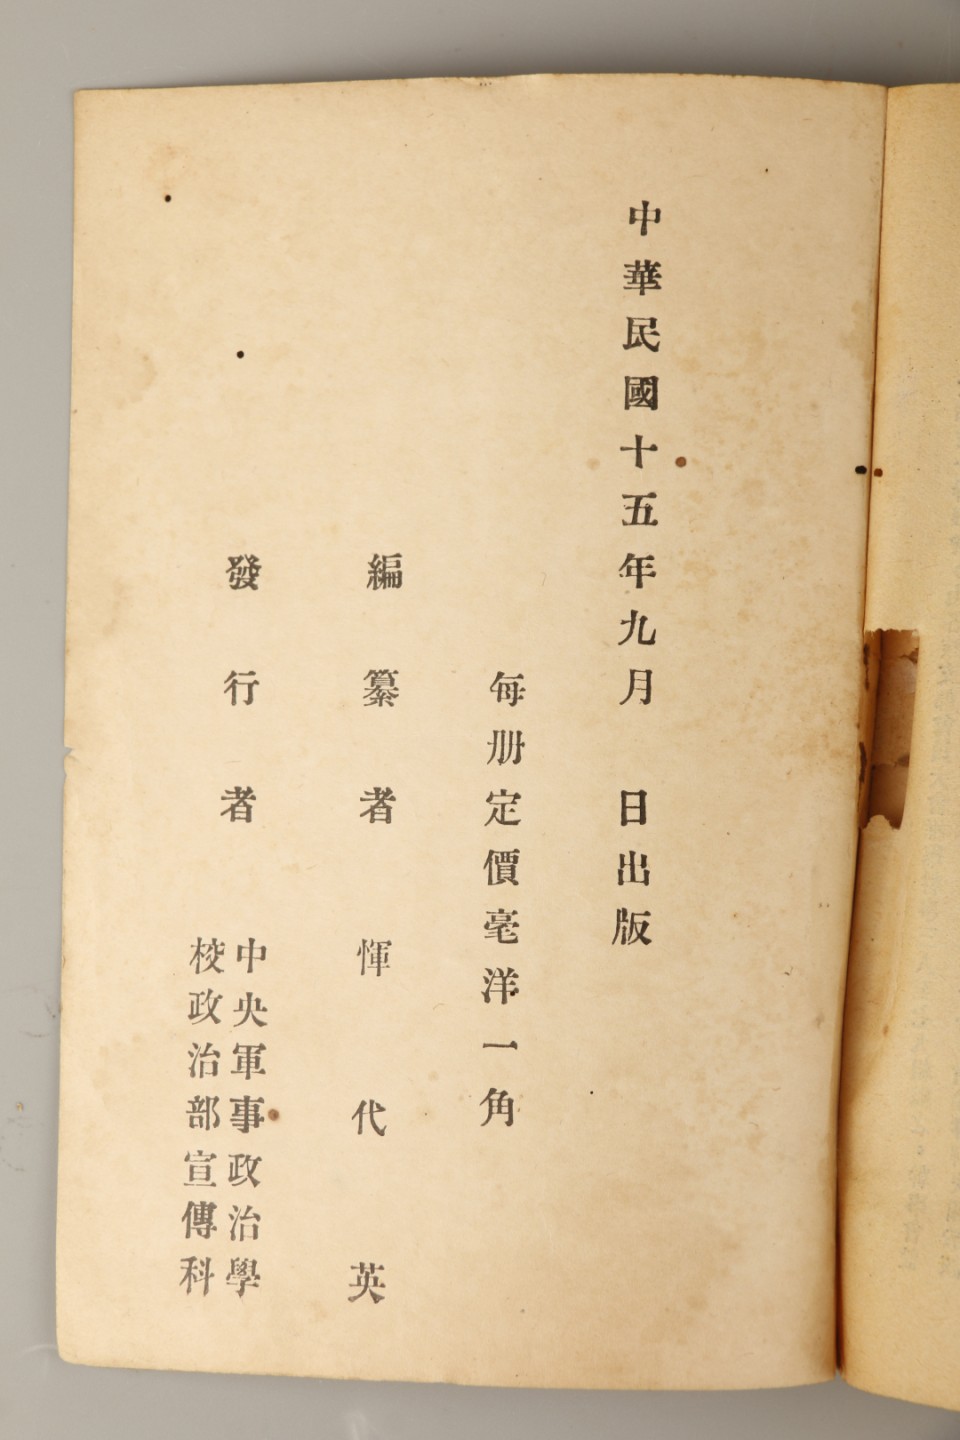 中華民國十五年九月　日出版
每册定價毫洋一角
編纂者　惲代英
發行者　中央軍事政治學
校政治部宣傳科